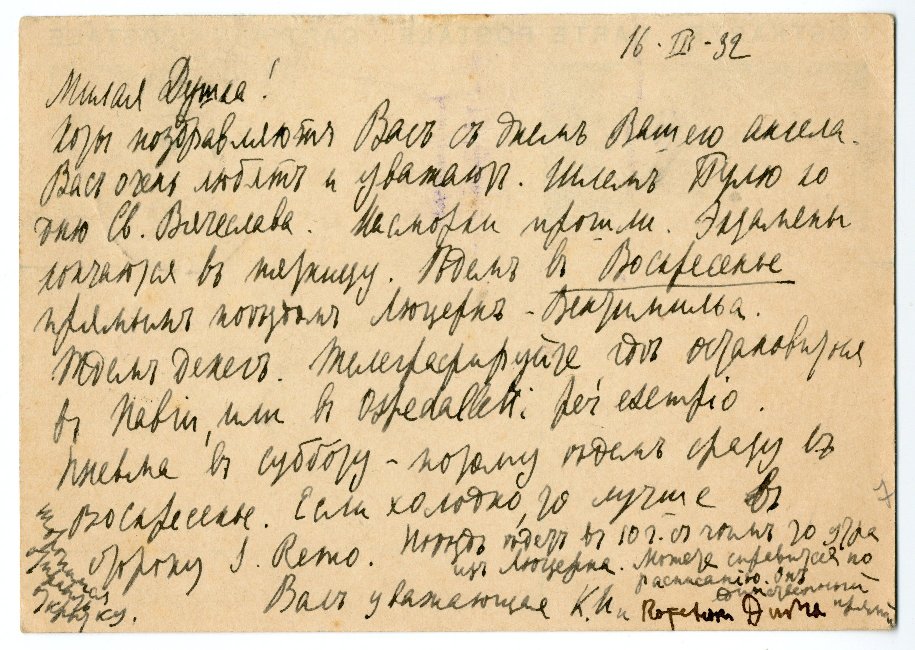 16 - III - 32
Милая Душа!
Козы поздравляютъ Васъ съ днемъ Вашего ангела.
Васъ очень любятъ и уважают. Шлемъ Пулю ко
дню Св. Вячеслава. Насморки прошли. Экзамены
кончаются въ пятницу. Ѣдемъ въ Воскресенье
прямымъ поѣздомъ Люцернъ - Вентимилья.
Ждемъ денегъ. Телеграфируйте гдѣ остановиться
въ Павіи, или въ Ospedaletti per esempio.
Пневма въ субботу - потому ѣдемъ сразу въ
воскресенье. Если холодно, то лучше въ
сторону S. Remo. Поѣздъ идетъ въ 10 ч. съ чѣмъ то утра
изъ Люцерна. Можете справиться по
расписанію. онъ
прямой
Васъ уважающая К. И и Dudia